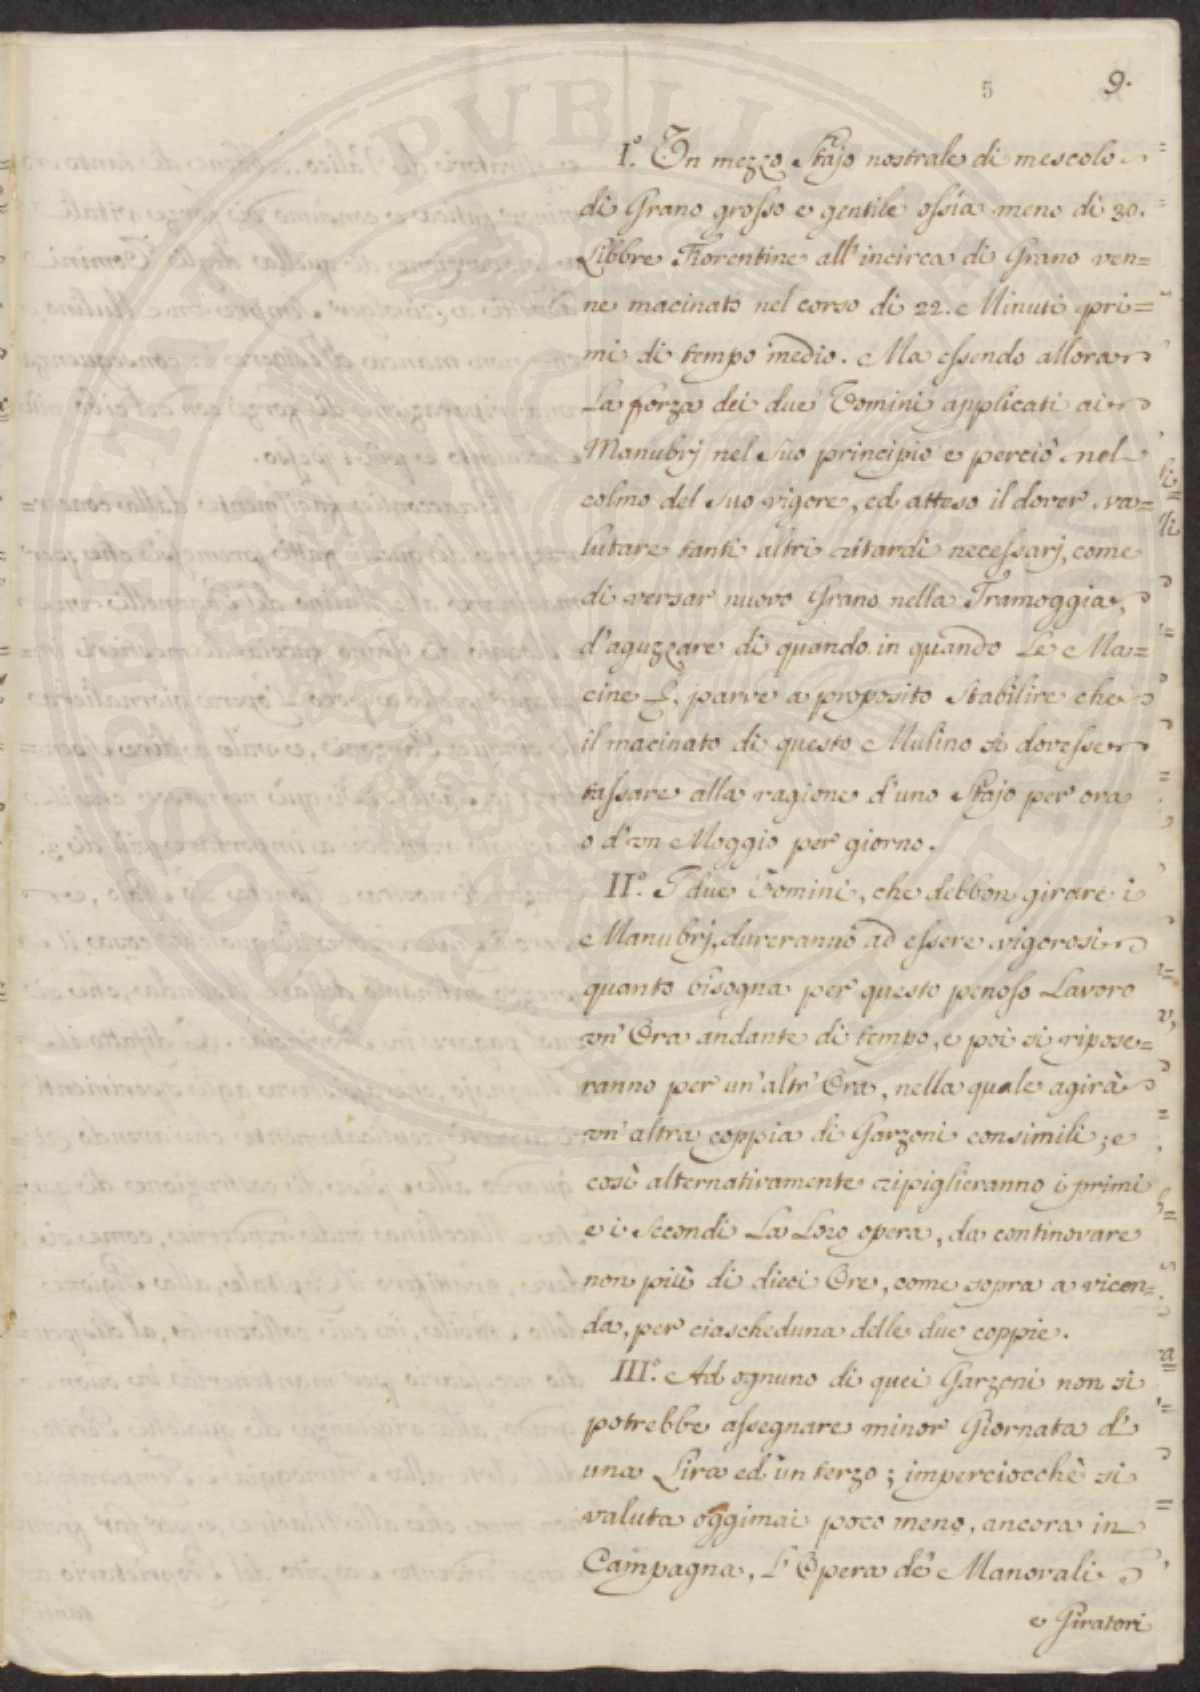 5 9.
I.º Un mezzo Stajo nostrale di mescolo
di Grano grosso e gentile ossia meno di 30.
Libbre Fiorentine all'incirca di Grano ven=
ne macinato nel corso di 22. Minuti pri=
mi di tempo medio. Ma essendo allora
La forza dei due Uomini applicati ai
Manubrj nel suo principio e perciò nel
colmo del suo vigore, ed atteso il dover va=
lutare tanti altri ritardi necessarj, come
di versar nuovo Grano nella Tramoggia,
d'aguzzare di quando in quando Le Ma=
cine &. parve a proposito stabilire che
il macinato di questo Mulino si dovesse
tassare alla ragione d'uno Stajo per ora
o d'un Moggio per giorno.
II.º I due Uomini, che debbon girare i
Manubrj, dureranno ad essere vigorosi
quanto bisogna per questo penoso Lavoro
un' Ora andante di tempo, e poi si ripose=
ranno per un'altr' Ora, nella quale agirà
un' altra coppia di Garzoni consimili; e
così alternativamente ripiglieranno i primi
e i secondi La Loro opera, da continovare
non più di dieci Ore, come sopra a vicen=
da, per ciascheduna delle due coppie.
III.º Ad ognuno di quei Garzoni non si
potrebbe assegnare minor Giornata d'
una Lira ed un terzo; imperciocchè si
valuta oggimai poco meno, ancora in
Campagna, L'Opera de' Manovali
e Giratori